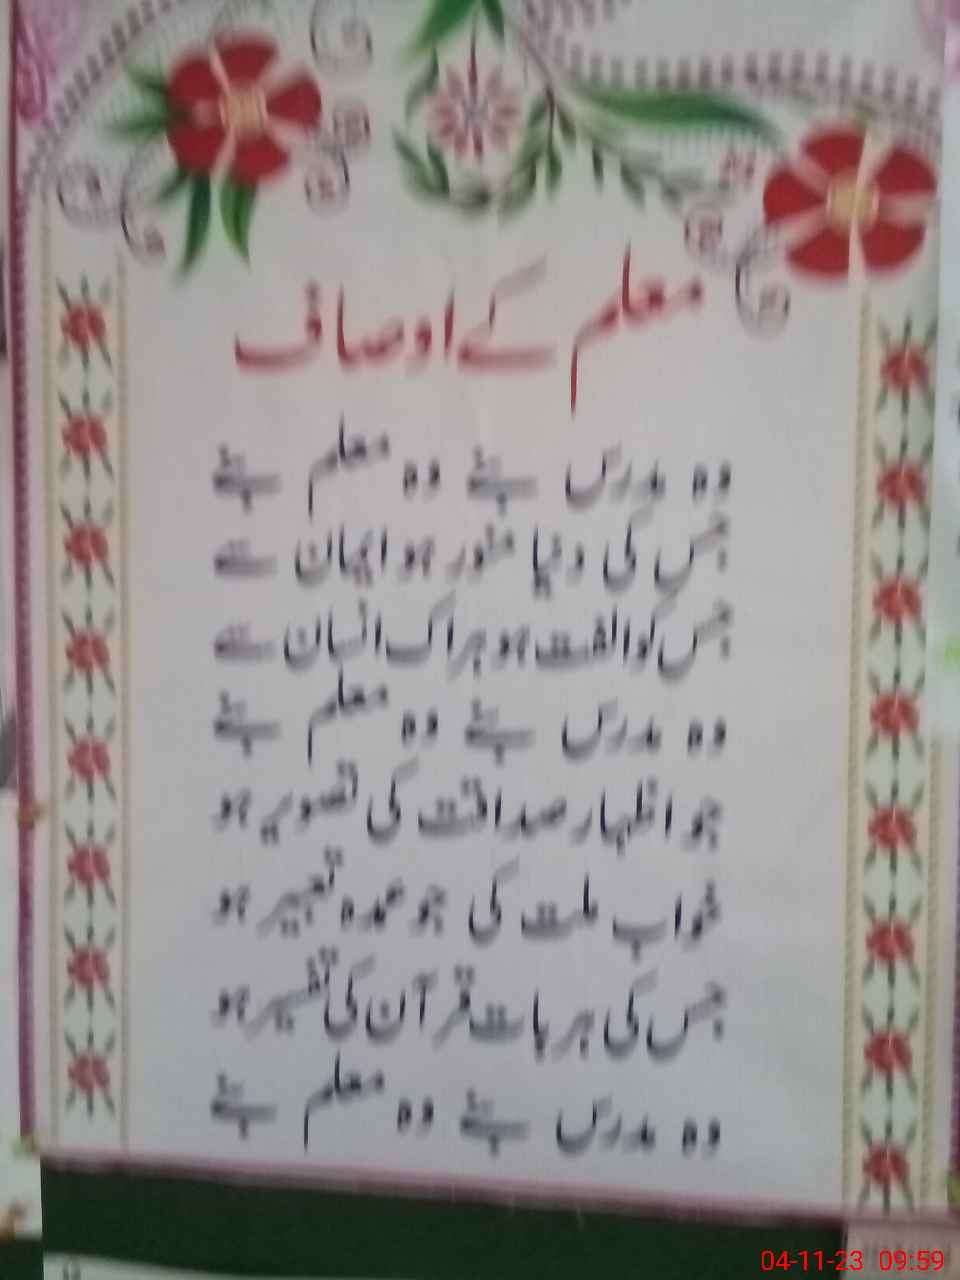 معلم کے اوصاف
وہ مدرس بنے وہ معلم بنے
جس کی دنیا منور ہو ایمان سے
جس کو الفت ہو ہر اک انسان سے
وہ مدرس بنے وہ معلم بنے
جو اظہار صداقت کی تصویر ہو
خواب ملت کی جو عمدہ تعبیر ہو
جس کی ہر بات قرآن کی تفسیر ہو
وہ مدرس بنے وہ معلم بنے
04-11-23 09:59